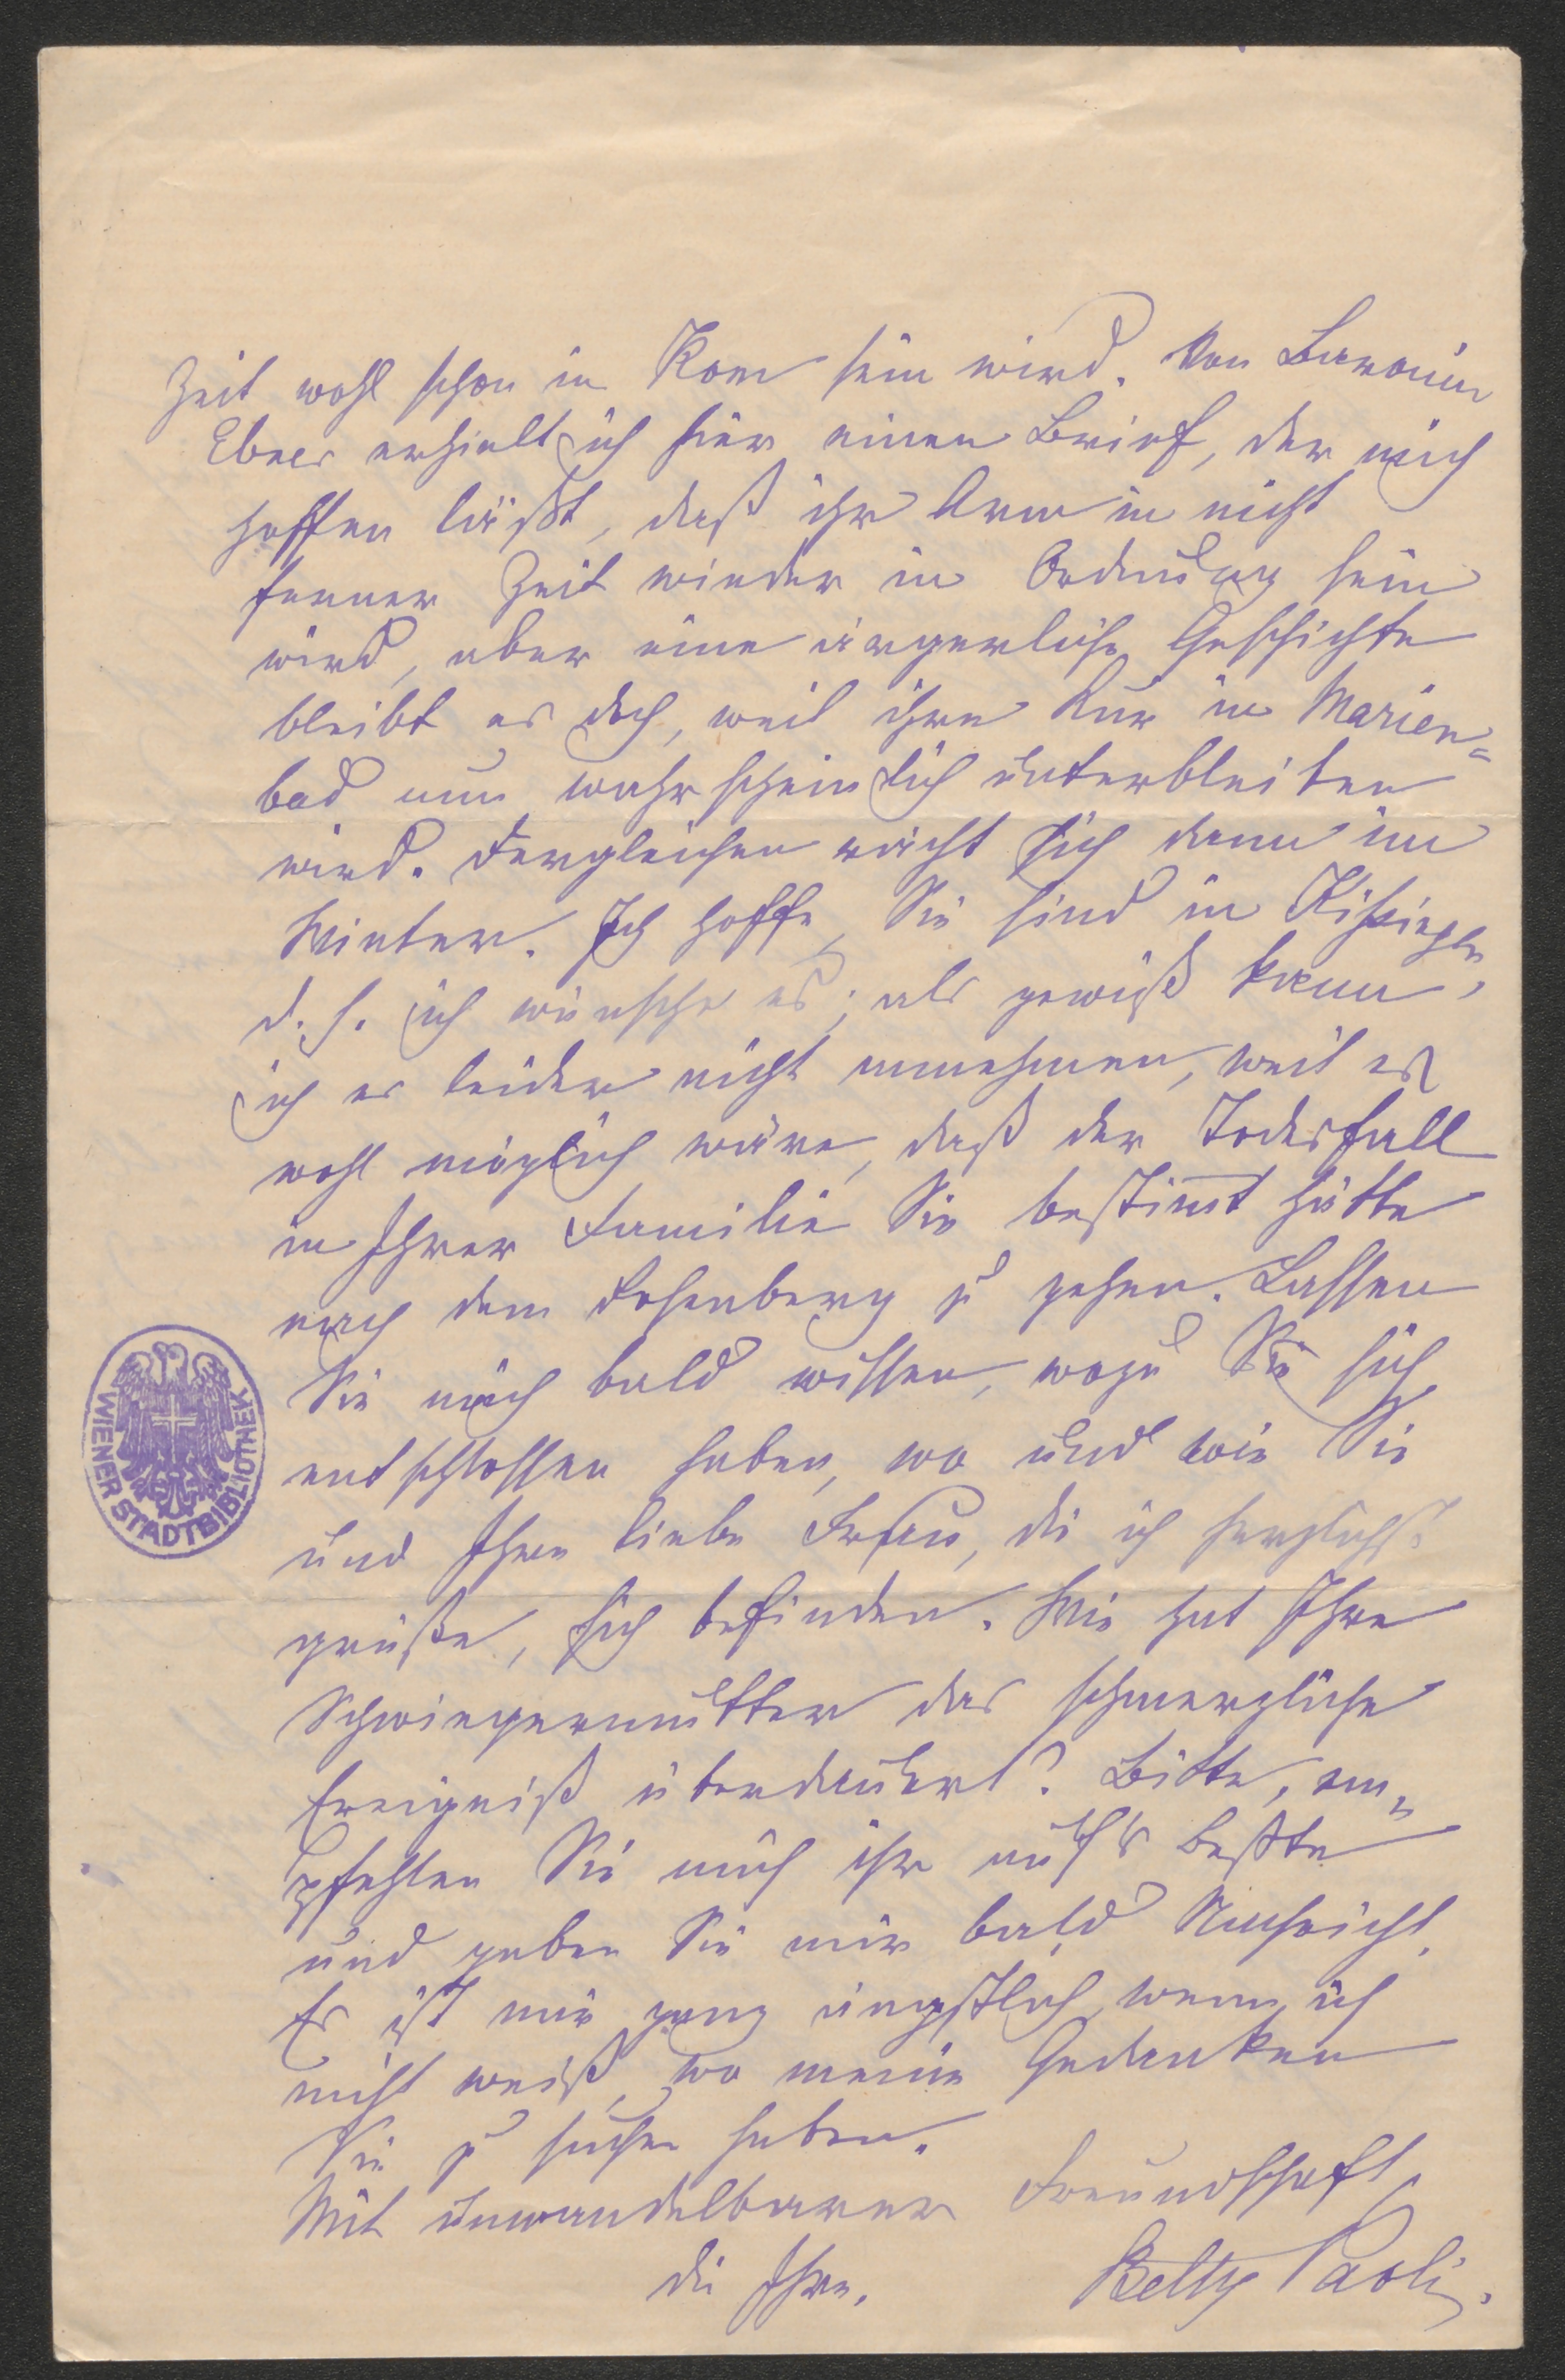 Zeit wohl schon in Rom sein wird. Von Baronin
Ebner erhielt ich hier einen Brief, der mich
hoffen läßt, daß ihr Arm in nicht
ferner Zeit wieder in Ordnung sein
wird, aber eine ärgerliche Geschichte
bleibt es doch, weil ihre Kur in Marien=
bad nun wahrscheinlich unterbleiben
wird. Dergleichen rächt sich dann im
Winter. Ich hoffe, Sie sind in Kissingen,
d. h. ich wünsche es; als gewiß kann
ich es leider nicht annehmen, weil es
wohl möglich wäre, daß der Todesfall
in Ihrer Familie Sie bestimt hätte
nach dem zu gehen. Lassen
Sie mich bald wissen, wozu Sie sich
entschlossen haben, wo und wie Sie
und Ihre liebe Frau, die ich herzlichst
grüße, sich befinden. Wie hat Ihre
Schwiegermutter das schmerzliche
Ereigniß überdauert? Bitte, em=
pfehlen Sie mich ihr auf's beßte
und geben Sie mir bald Nachricht.
Es ist mir ganz ängstlich, wenn ich
nicht weiß, wo meine Gedanken
Sie zu suchen haben.
Mit unwandelbarer Freundschaft
die Ihre.
Betty Paoli.
WIENER STADTBIBLIOTHEK